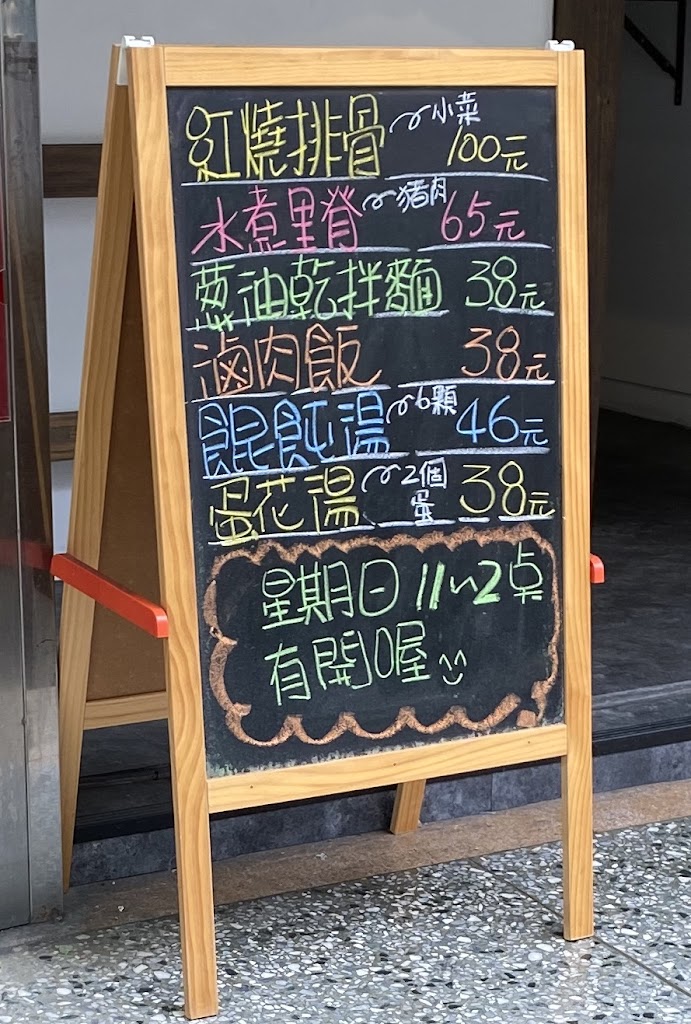 紅燒排骨 小菜 100元
水煮里脊 猪肉 65元
葱油乾拌麵 38元
滷肉飯 38元
餛飩湯 6顆 46元
蛋花湯 2個蛋 38元
星期日 11~2点
有開喔